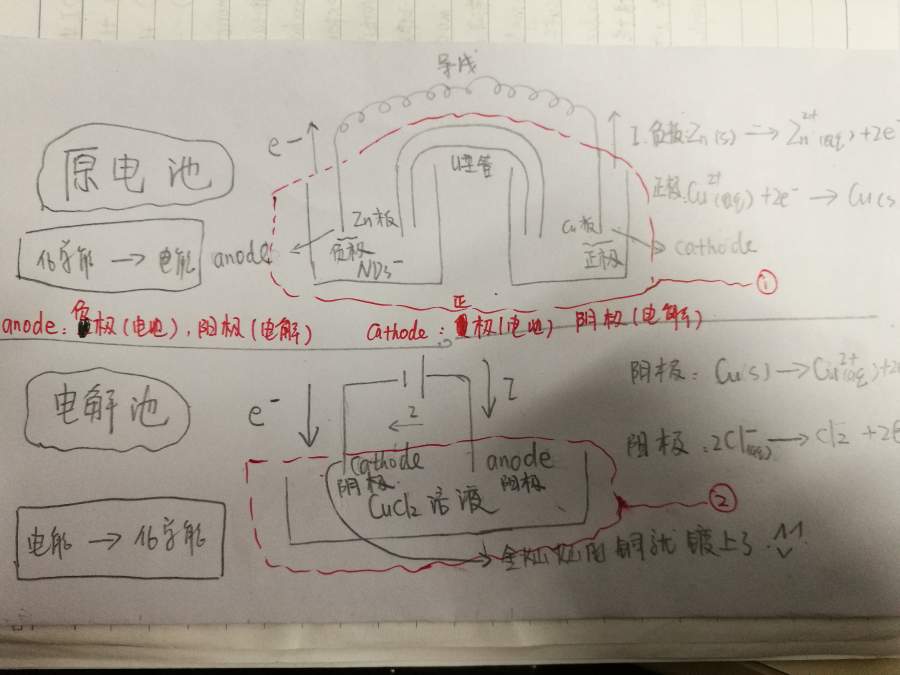 导线
原电池
e-
U型管
I. 负极: Zn(s) → Zn²⁺(aq) + 2e⁻
正极: Cu²⁺(aq) + 2e⁻ → Cu(s
化学能 → 电能
anode
Zn板
负极
NO₃⁻
Cu板
正极
cathode
①
anode: 负极(电池), 阳极(电解)
cathode: 正极(电池) 阴极(电解)
电解池
e⁻
I
2
cathode
阴极
anode
阳极
CuCl₂ 溶液
阴极: Cu(s) → Cu²⁺(aq) + 2
阳极: 2Cl⁻(aq) → Cl₂ + 2e
②
电能 → 化学能
金灿灿的铜就镀上了